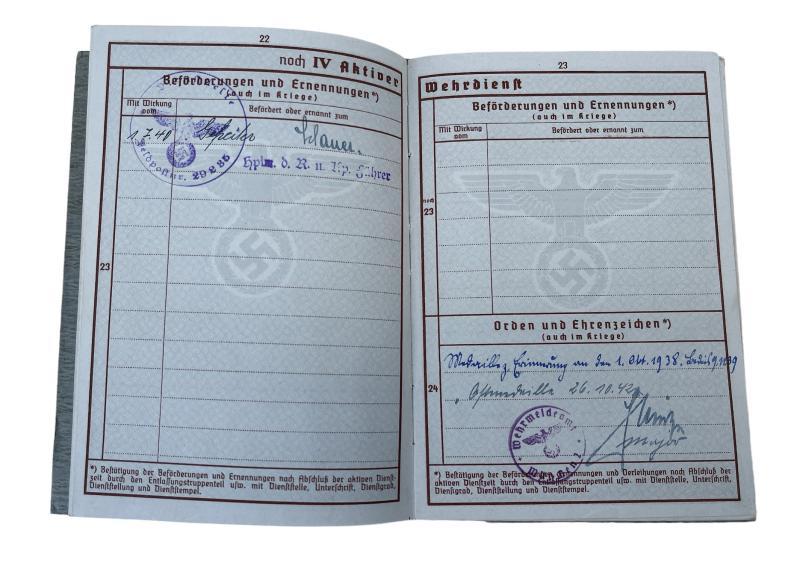 22
noch IV Aktiver
Beförderungen und Ernennungen*)
(auch im Kriege)
Mit Wirkung vom
Befördert oder ernannt zum
1.7.40 Gefreiter
Feldpostnr. 29286
Hptm. d. R. u. Kp. Führer
23
*) Bestätigung der Beförderungen und Ernennungen nach Abschluß der aktiven Dienst-
zeit durch den Entlassungstruppenteil usw. mit Dienststelle, Unterschrift, Dienstgrad,
Dienststellung und Dienststempel.
23
Wehrdienst
Beförderungen und Ernennungen*)
(auch im Kriege)
Mit Wirkung vom
Befördert oder ernannt zum
noch
23
Orden und Ehrenzeichen*)
(auch im Kriege)
Medaille z. Erinnerung an den 1. Okt. 1938.
24
Ostmedaille 26.10.42
Major
Wehrmeldeamt
*) Bestätigung der Beförderungen, Ernennungen und Verleihungen nach Abschluß der
aktiven Dienstzeit durch den Entlassungstruppenteil usw. mit Dienststelle, Unterschrift,
Dienstgrad, Dienststellung und Dienststempel.